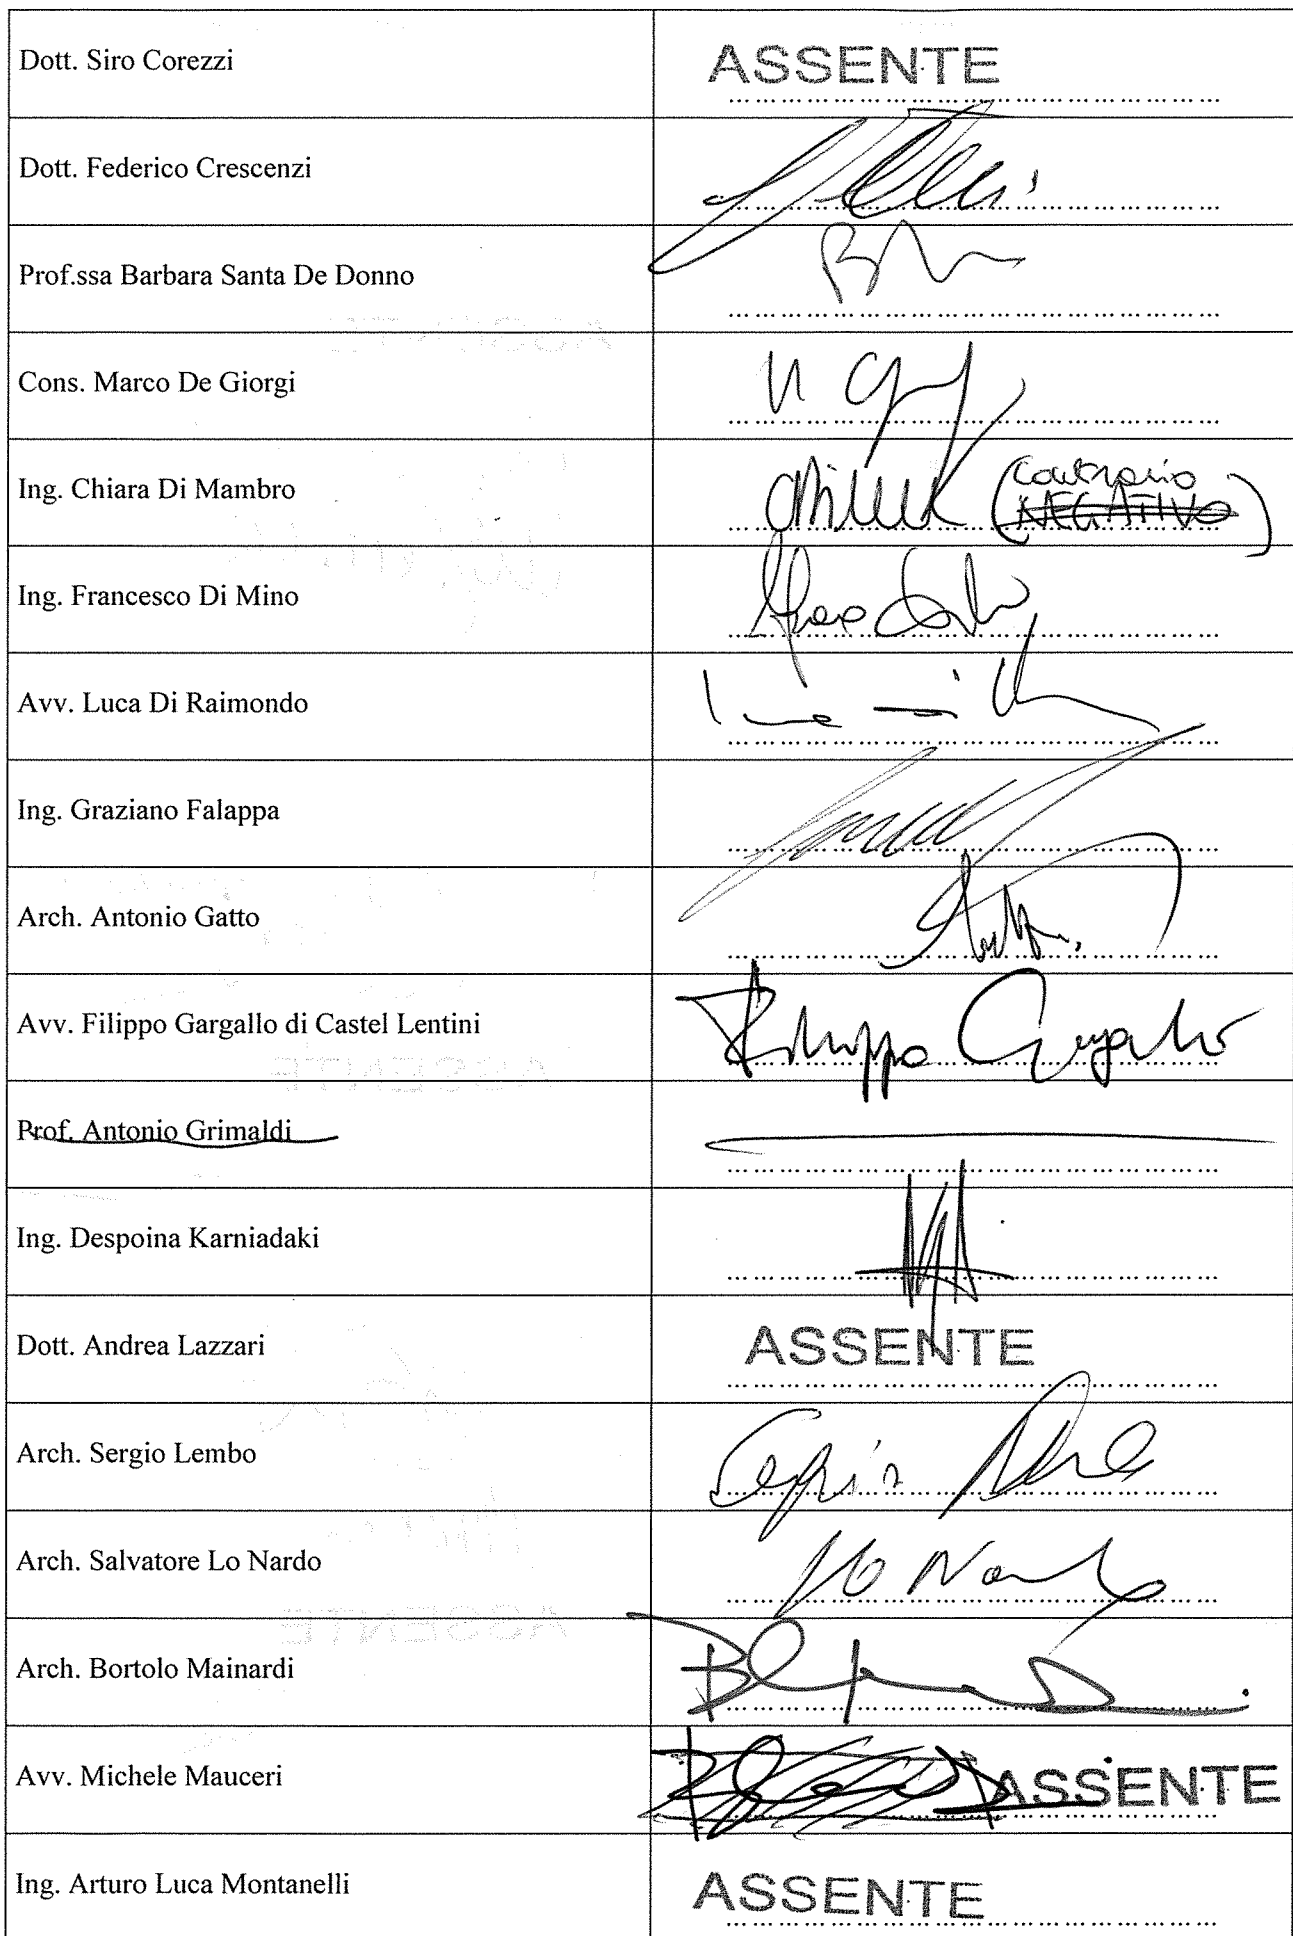 Dott. Siro Corezzi
ASSENTE
Dott. Federico Crescenzi
Prof.ssa Barbara Santa De Donno
Cons. Marco De Giorgi
Ing. Chiara Di Mambro
(contrario
NEGATIVO)
Ing. Francesco Di Mino
Avv. Luca Di Raimondo
Ing. Graziano Falappa
Arch. Antonio Gatto
Avv. Filippo Gargallo di Castel Lentini
Filippo Gargallo
Prof. Antonio Grimaldi
Ing. Despoina Karniadaki
Dott. Andrea Lazzari
ASSENTE
Arch. Sergio Lembo
Arch. Salvatore Lo Nardo
Lo Nardo
Arch. Bortolo Mainardi
Avv. Michele Mauceri
ASSENTE
Ing. Arturo Luca Montanelli
ASSENTE